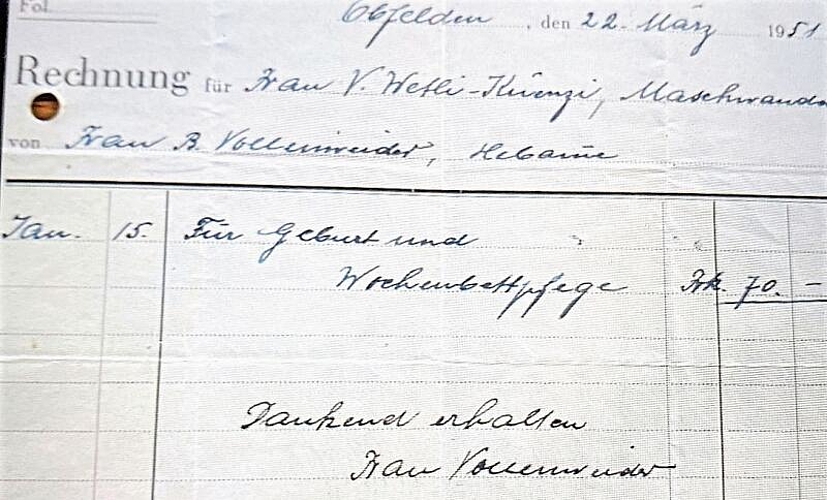 Fol.
Obfelden, den 22. März 1951
Rechnung für Frau V. Wetli-Küenzi, Maschwanden
von Frau B. Vollenweider, Hebame
Jan. 15. Für Geburt und
Wochenbettpflege Frk. 70. –
Dankend erhalten
Frau Vollenweider